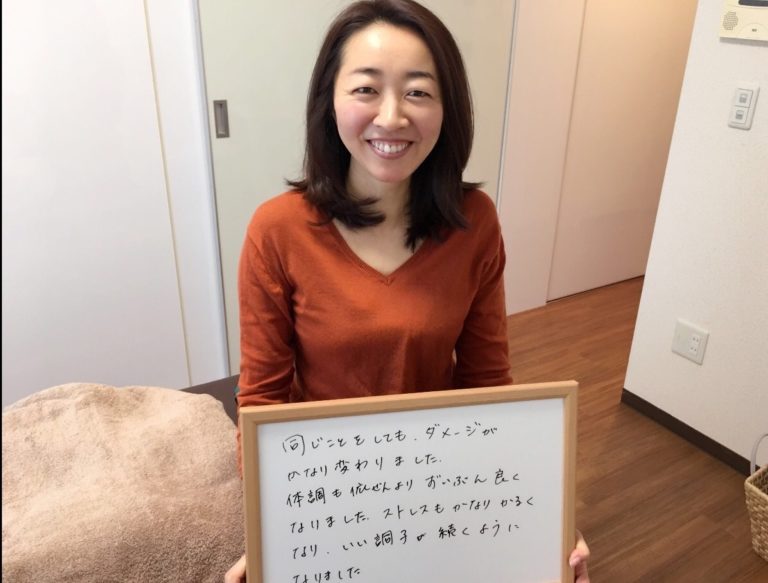 同じことをしても、ダメージが
かなり変わりました。
体調も依ぜんより ずいぶん良く
なりました。ストレスもかなり かるく
なり、いい調子が続くように
なりました